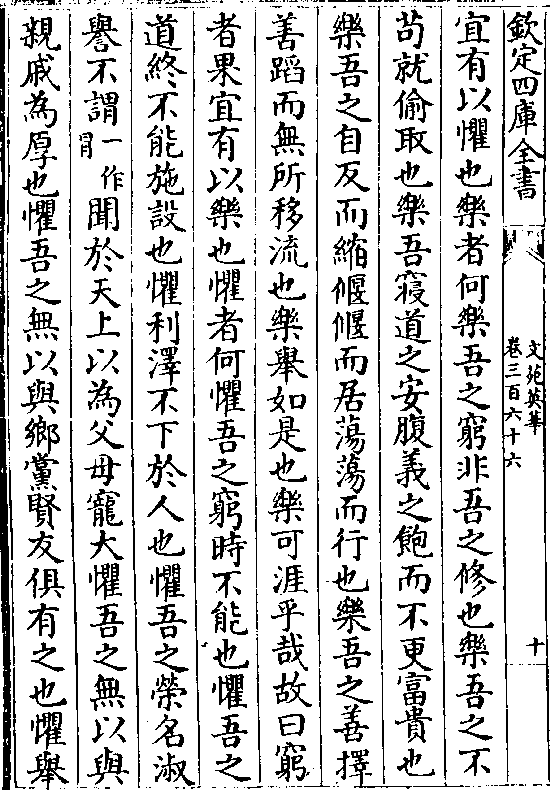 欽定四庫全書
文苑英華
卷三百六十六
十
宜有以懼也樂者何樂吾之窮非吾之修也樂吾之不
苟就偷取也樂吾寢道之安腹義之飽而不更富貴也
樂吾之自反而縮偃偃而居蕩蕩而行也樂吾之善擇
善蹈而無所移流也樂舉如是也樂可涯乎哉故曰窮
者果宜有以樂也懼者何懼吾之窮時不能也懼吾之
道終不能施設也懼利澤不下於人也懼吾之榮名淑
譽不謂一作胃聞於天上以為父母寵大懼吾之無以與
親戚為厚也懼吾之無以與鄉黨賢友俱有之也懼舉